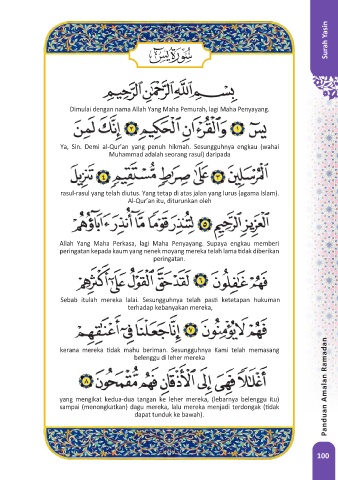 سُورَةُ يسٓ
بِسْمِ اللَّهِ الرَّحْمَٰنِ الرَّحِيمِ
Dimulai dengan nama Allah Yang Maha Pemurah, lagi Maha Penyayang.
يسٓ ١ وَالْقُرْءَانِ الْحَكِيمِ ٢ إِنَّكَ لَمِنَ
Ya, Sin. Demi al-Qur'an yang penuh hikmah. Sesungguhnya engkau (wahai
Muhammad adalah seorang rasul) daripada
الْمُرْسَلِينَ ٣ عَلَىٰ صِرَٰطٍ مُّسْتَقِيمٍ ٤ تَنزِيلَ
rasul-rasul yang telah diutus. Yang tetap di atas jalan yang lurus (agama Islam).
Al-Qur'an itu, diturunkan oleh
الْعَزِيزِ الرَّحِيمِ ٥ لِتُنذِرَ قَوْمًا مَّا أُنذِرَ ءَابَاؤُهُمْ
Allah Yang Maha Perkasa, lagi Maha Penyayang. Supaya engkau memberi
peringatan kepada kaum yang nenek moyang mereka telah lama tidak diberikan
peringatan.
فَهُمْ غَٰفِلُونَ ٦ لَقَدْ حَقَّ الْقَوْلُ عَلَىٰ أَكْثَرِهِمْ
Sebab itulah mereka lalai. Sesungguhnya telah pasti ketetapan hukuman
terhadap kebanyakan mereka,
فَهُمْ لَا يُؤْمِنُونَ ٧ إِنَّا جَعَلْنَا فِي أَعْنَٰقِهِمْ
kerana mereka tidak mahu beriman. Sesungguhnya Kami telah memasang
belenggu di leher mereka
أَغْلَٰلًا فَهِيَ إِلَى الْأَذْقَانِ فَهُم مُّقْمَحُونَ ٨
yang mengikat kedua-dua tangan ke leher mereka, (lebarnya belenggu itu)
sampai (menongkatkan) dagu mereka, lalu mereka menjadi terdongak (tidak
dapat tunduk ke bawah).
Surah Yasin
Panduan Amalan Ramadan
100